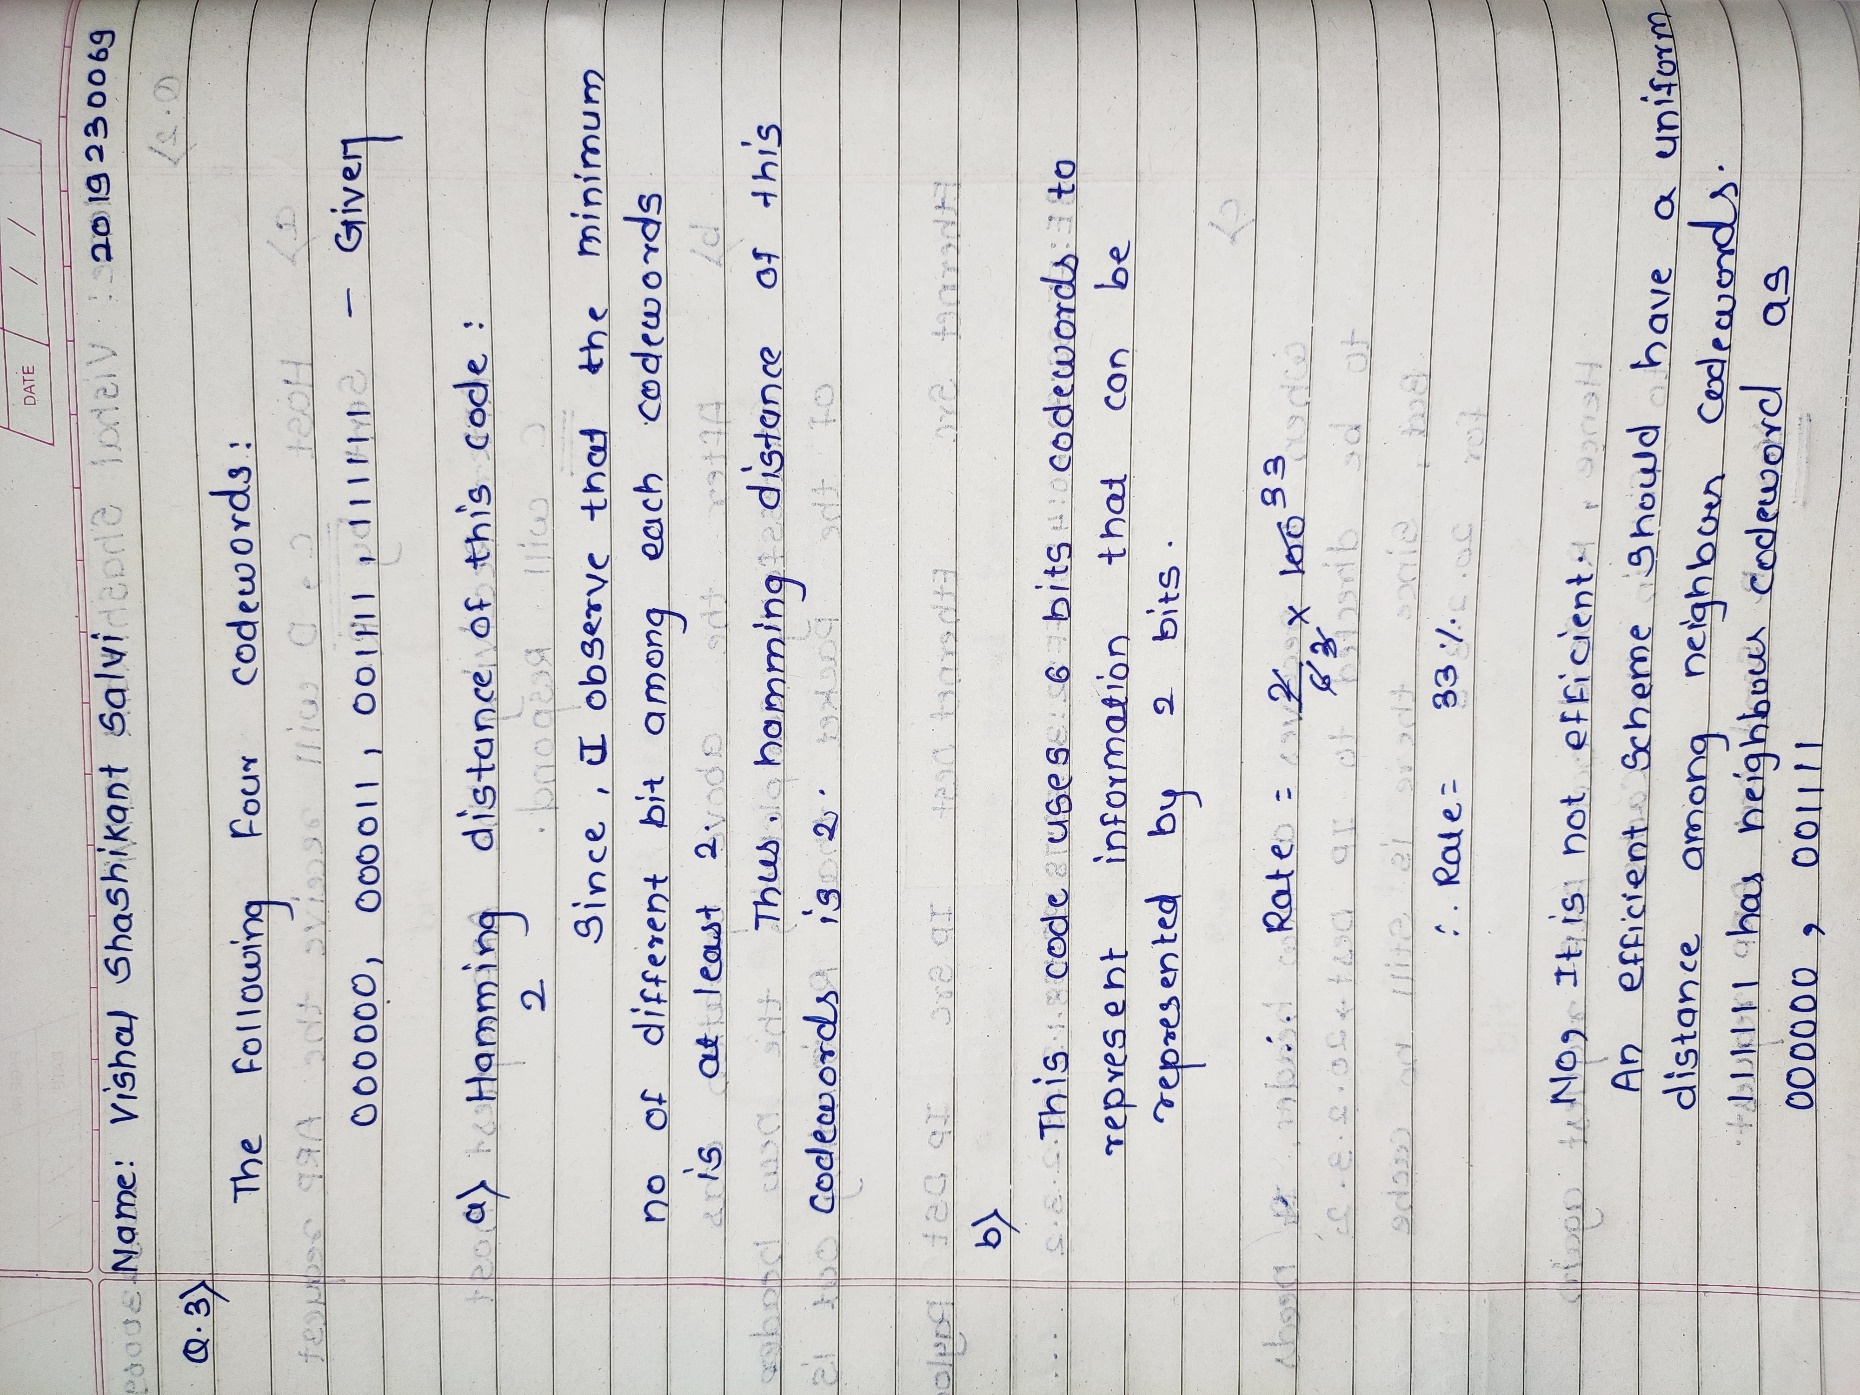 DATE / /
Name: Vishal Shashikant Salvi 2019230069
Q.3)
The Following Four codewords:
000000, 000011, 001111, 111111 - Given
a) Hamming distance of this code:
2
Since, I observe that the minimum
no of different bit among each codewords
is at least 2.
Thus, hamming distance of this
codewords is 2.
b)
This code uses 6 bits codewords to
represent information that can be
represented by 2 bits.
∴ Rate = 2/6 3 × 100 33
∴ Rate = 33%
No, It is not efficient.
An efficient scheme should have a uniform
distance among neighbour codewords.
111111 has neighbour codeword as
000000, 001111